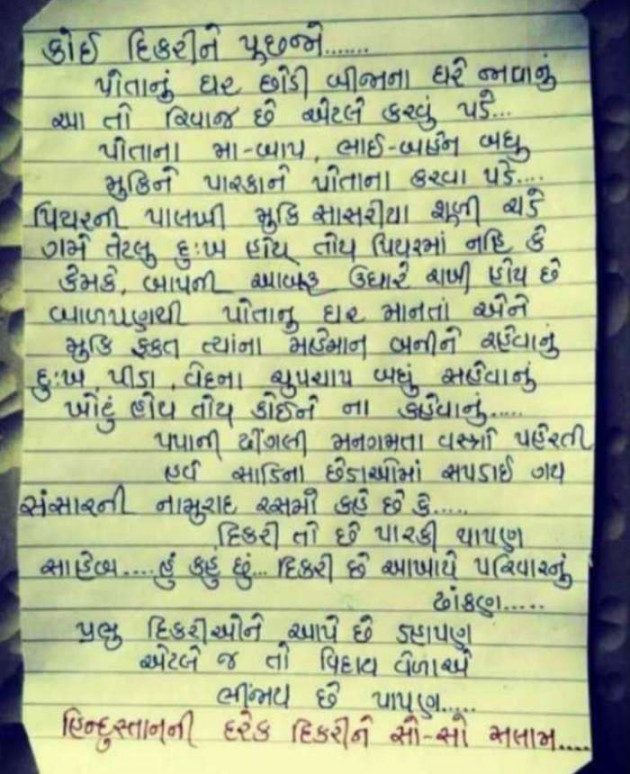 કોઈ દિકરીને પૂછજો.......
પોતાનું ઘર છોડી બીજાના ઘરે જાવાનું
આ તો રિવાજ છે એટલે કરવું પડે...
પોતાના મા-બાપ, ભાઈ-બહેન બધુ
મુકિને પારકાને પોતાના કરવા પડે....
પિયરની પાલખી મુકિ સાસરીયા શૂળી ચડે
ગમે તેટલુ દુઃખ હોય તોય પિયરમાં નહિ કે
કેમકે, બાપની આબરૂ ઉધારે રાખી હોય છે
બાળપણથી પોતાનુ ઘર માનતાં એને
મુકિ ફકત ત્યાંના મહેમાન બનીને રહેવાનું
દુઃખ, પીડા, વેદના ચુપચાપ બધું સહેવાનું
ખોટું હોય તોય કોઈને ના કહેવાનું.....
પપાની ઢીંગલી મનગમતા વસ્ત્રો પહેરતી
હવે સાડિના છેડાઓમાં સપડાઈ ગય
સંસારની નામુરાદ રસમો કહે છે કે.....
દિકરી તો છે પારકી થાપણ
સાહેબ....હું કહુ છું... દિકરી છે આખાયે પરિવારનું
ઢાંકણ.....
પ્રભુ દિકરીઓને આપે છે ડહાપણ
એટલે જ તો વિદાય વેળાએ
ભીંજાય છે પાપણ.....
હિન્દુસ્તાનની દરેક દિકરીને સો-સો સલામ....